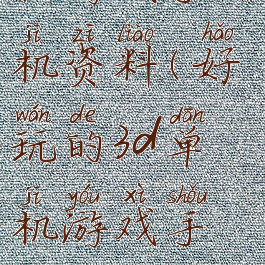 jī zī liào hǎo
机资料(好
wán de dān
玩的3d单
jī yóu xì shǒu
机游戏手